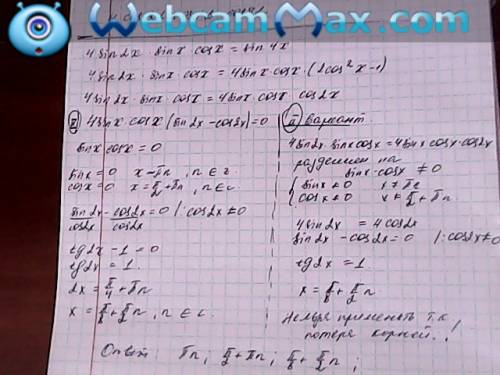 WebcamMax.com
4 sin 2x · sin x cos x = sin 4x
4 sin 2x · sin x cos x = 4 sin x cos x · (2cos²x - 1)
4 sin 2x · sin x cos x = 4 sin x cos x cos 2x
I 4 sin x cos x (sin 2x - cos 2x) = 0
sin x cos x = 0
sin x = 0 x = πn, n ∈ z
cos x = 0 x = π/2 + πn, n ∈ z
sin 2x/cos 2x - cos 2x/cos 2x = 0 | : cos 2x ≠ 0
tg 2x - 1 = 0
tg 2x = 1
2x = π/4 + πn
x = π/8 + π/2 n, n ∈ z
II вариант
4 sin 2x · sin x cos x = 4 sin x cos x · cos 2x
разделим на
sin x · cos x ≠ 0
{ sin x ≠ 0 x ≠ πn
cos x ≠ 0 x ≠ π/2 + πn
4 sin 2x = 4 cos 2x
sin 2x - cos 2x = 0 | : cos 2x ≠ 0
tg 2x = 1
x = π/8 + π/2 n
Нельзя применять т.к
потеря корней..!
Ответ: πn; π/2 + πn; π/8 + π/2 n;